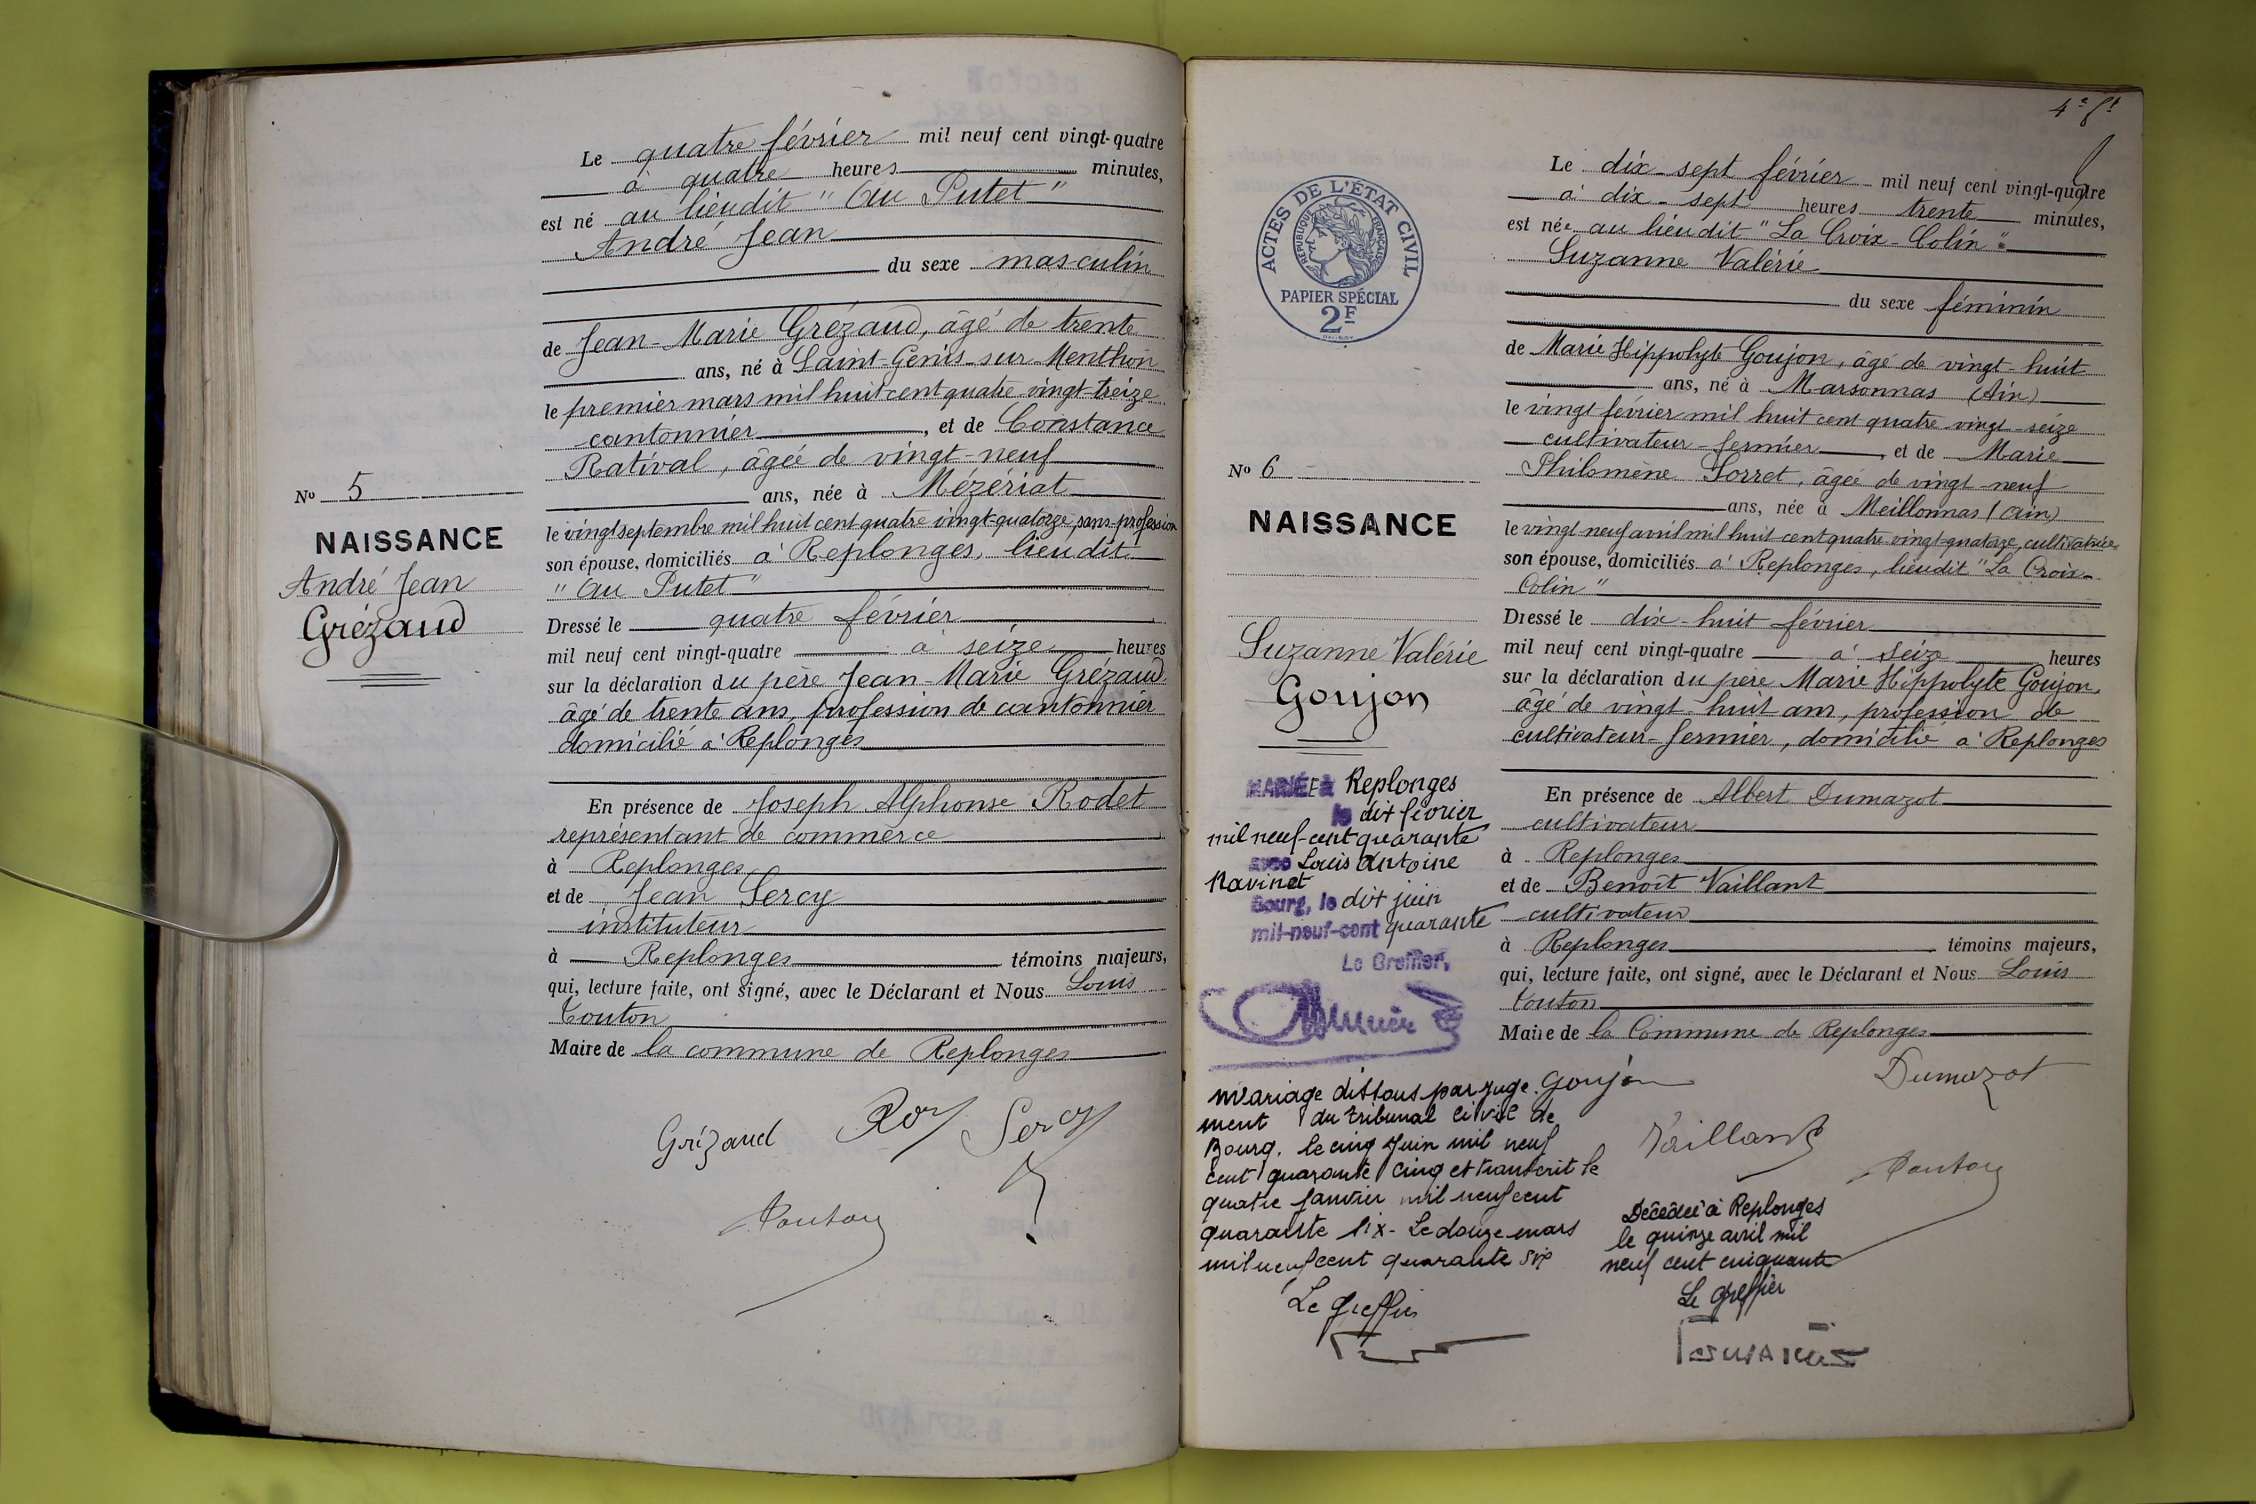 Le quatre février mil neuf cent vingt-quatre
à quatre heures minutes,
est né au lieudit "Au Putet"
André Jean
du sexe masculin
de Jean-Marie Grézaud, âgé de trente
ans, né à Saint-Genis-sur-Menthon
le premier mars mil huit cent quatre vingt-treize
cantonnier, et de Constance
Ratival, âgée de vingt-neuf
ans, née à Mézériat
le vingt septembre mil huit cent quatre vingt-quatorze, sans profession
son épouse, domiciliés à Replonges, lieudit
"Au Putet"
Dressé le quatre février
mil neuf cent vingt-quatre à seize heures
sur la déclaration du père Jean-Marie Grézaud
âgé de trente ans, profession de cantonnier
domicilié à Replonges
En présence de Joseph Alphonse Rodet
représentant de commerce
à Replonges
et de Jean Sercy
instituteur
à Replonges témoins majeurs,
qui, lecture faite, ont signé, avec le Déclarant et Nous Louis
Touton
Maire de la commune de Replonges
Grézaud Sercy
Touton
No 5
NAISSANCE
André Jean
Grézaud
4e ft
ACTES DE L'ÉTAT CIVIL
RÉPUBLIQUE FRANÇAISE
PAPIER SPÉCIAL
2F
No 6
NAISSANCE
Suzanne Valérie
Goujon
MARIÉE à Replonges
le dix février
mil neuf-cent quarante
avec Louis Antoine
Navinet
Bourg, le dix juin
mil-neuf-cent quarante
Le Greffier,
Mariage dissous par juge-
ment du tribunal civil de
Bourg, le cinq juin mil neuf
cent quarante cinq et transcrit le
quatre janvier mil neuf cent
quarante six - Le douze mars
mil neuf cent quarante six
Le greffier
Le dix-sept février mil neuf cent vingt-quatre
à dix-sept heures trente minutes,
est née au lieudit "La Croix-Colin"
Suzanne Valérie
du sexe féminin
de Marie Hippolyte Goujon, âgé de vingt-huit
ans, né à Marsonnas (Ain)
le vingt février mil huit cent quatre vingt-seize
cultivateur-fermier, et de Marie
Philomène Sorret, âgée de vingt-neuf
ans, née à Meillonnas (Ain)
le vingt neuf avril mil huit cent quatre vingt-quatorze, cultivatrice
son épouse, domiciliés à Replonges, lieudit "La Croix-
Colin"
Dressé le dix-huit février
mil neuf cent vingt-quatre à seize heures
sur la déclaration du père Marie Hippolyte Goujon,
âgé de vingt-huit ans, profession de
cultivateur-fermier, domicilié à Replonges
En présence de Albert Dumazot
cultivateur
à Replonges
et de Benoît Vaillant
cultivateur
à Replonges témoins majeurs,
qui, lecture faite, ont signé, avec le Déclarant et Nous Louis
Touton
Maire de la Commune de Replonges
Goujon Dumazot
Vaillant
Touton
Décédée à Replonges
le quinze avril mil
neuf cent cinquante
Le greffier